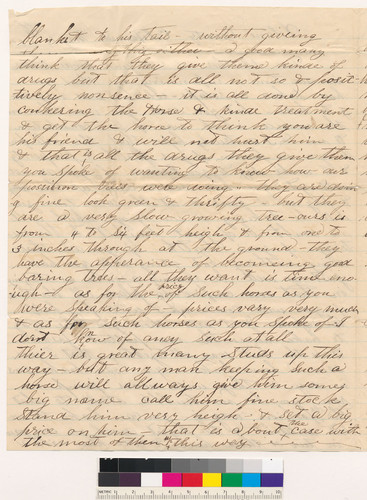 blanket to his tail - without giveing
a good many
think that they give theme kinde of
drugs but that is all not so & posit-
tively nonsence - it is all done by
conkering the Horse & kinde treatment
& get the horse to think you are
his friend & will not hurt him
& that is all the drugs they give them
you spoke of wanting to know how our
trees were - they are doin
g fine look green & thrifty - but they
are a very slow growing tree - ours is
from 4 to six feet heigh & from one to
3 inches through at the ground - they
have the apperance of becomeing good
baring trees - all they want is time eno-
ugh - as for the price of such horses as you
were speaking of - prices vary very much
& as for such horses as you spoke of I
dont know of aney such at all
thier is great many studs up this
way - but any man keeping such a
horse will allways give him some
big name call him fine stock
stand him very heigh - & set a big
price on him - that is about the case with
the most of them this way